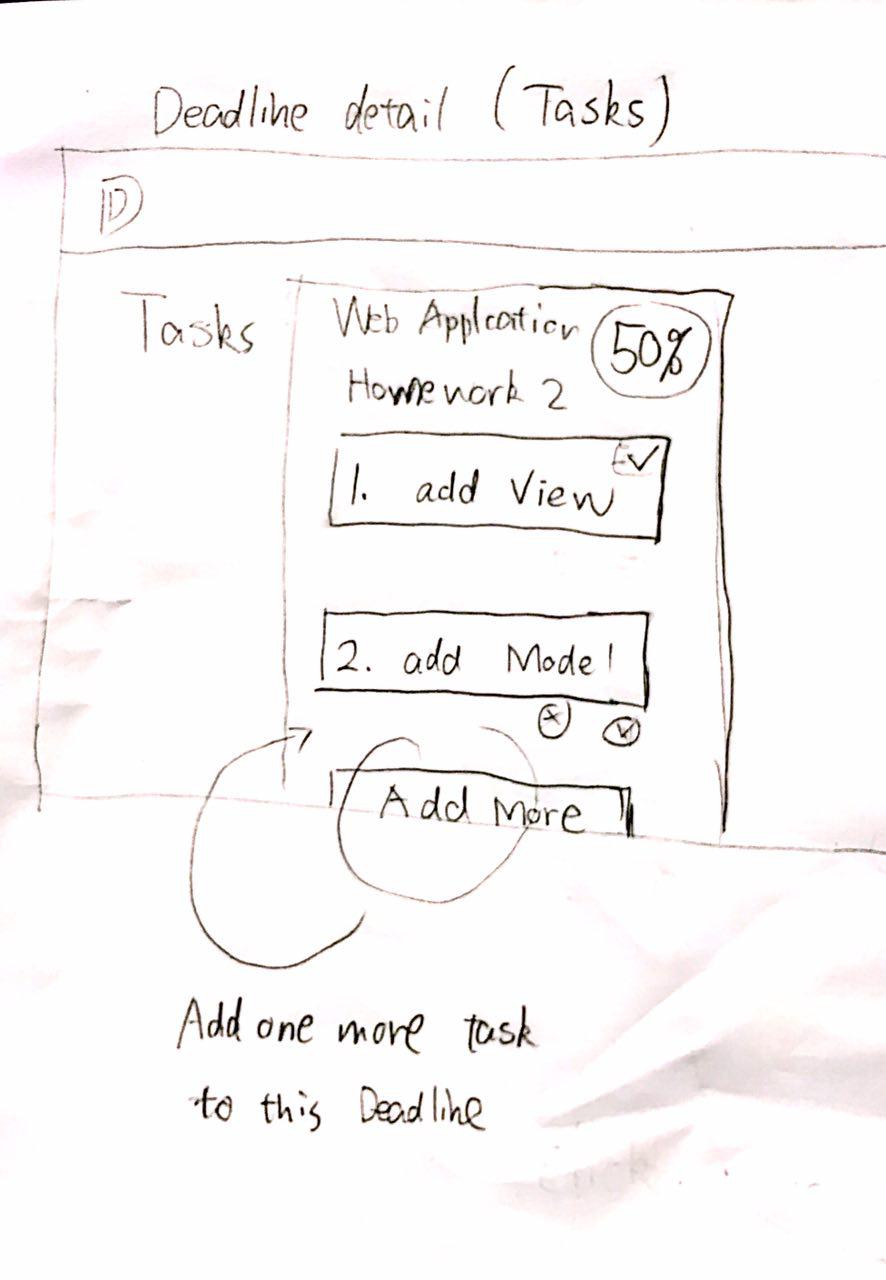 Deadline detail (Tasks)
D
Tasks
Web Applcation
Homework 2
50%
1. add View
2. add Model
Add More
Add one more task
to this Deadline